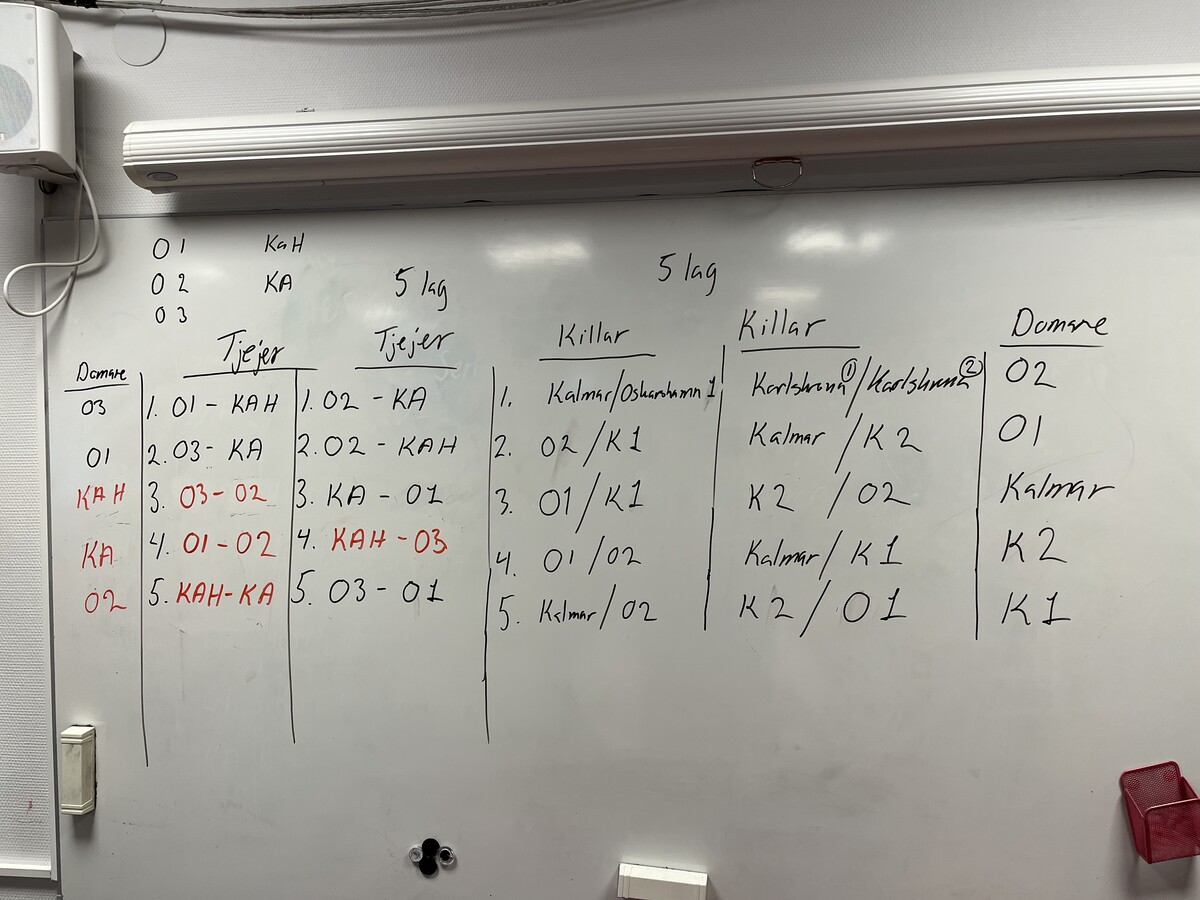 O1 KaH
O2 KA 5 lag 5 lag
O3
Domare Tjejer Tjejer Killar Killar Domare
O3 1. O1 - KAH 1. O2 - KA 1. Kalmar/Oskarshamn 1 Karlskrona①/Karlskrona② O2
O1 2. O3 - KA 2. O2 - KAH 2. O2/K1 Kalmar/K2 O1
KAH 3. O3 - O2 3. KA - O1 3. O1/K1 K2/O2 Kalmar
KA 4. O1 - O2 4. KAH - O3 4. O1/O2 Kalmar/K1 K2
O2 5. KAH - KA 5. O3 - O1 5. Kalmar/O2 K2/O1 K1